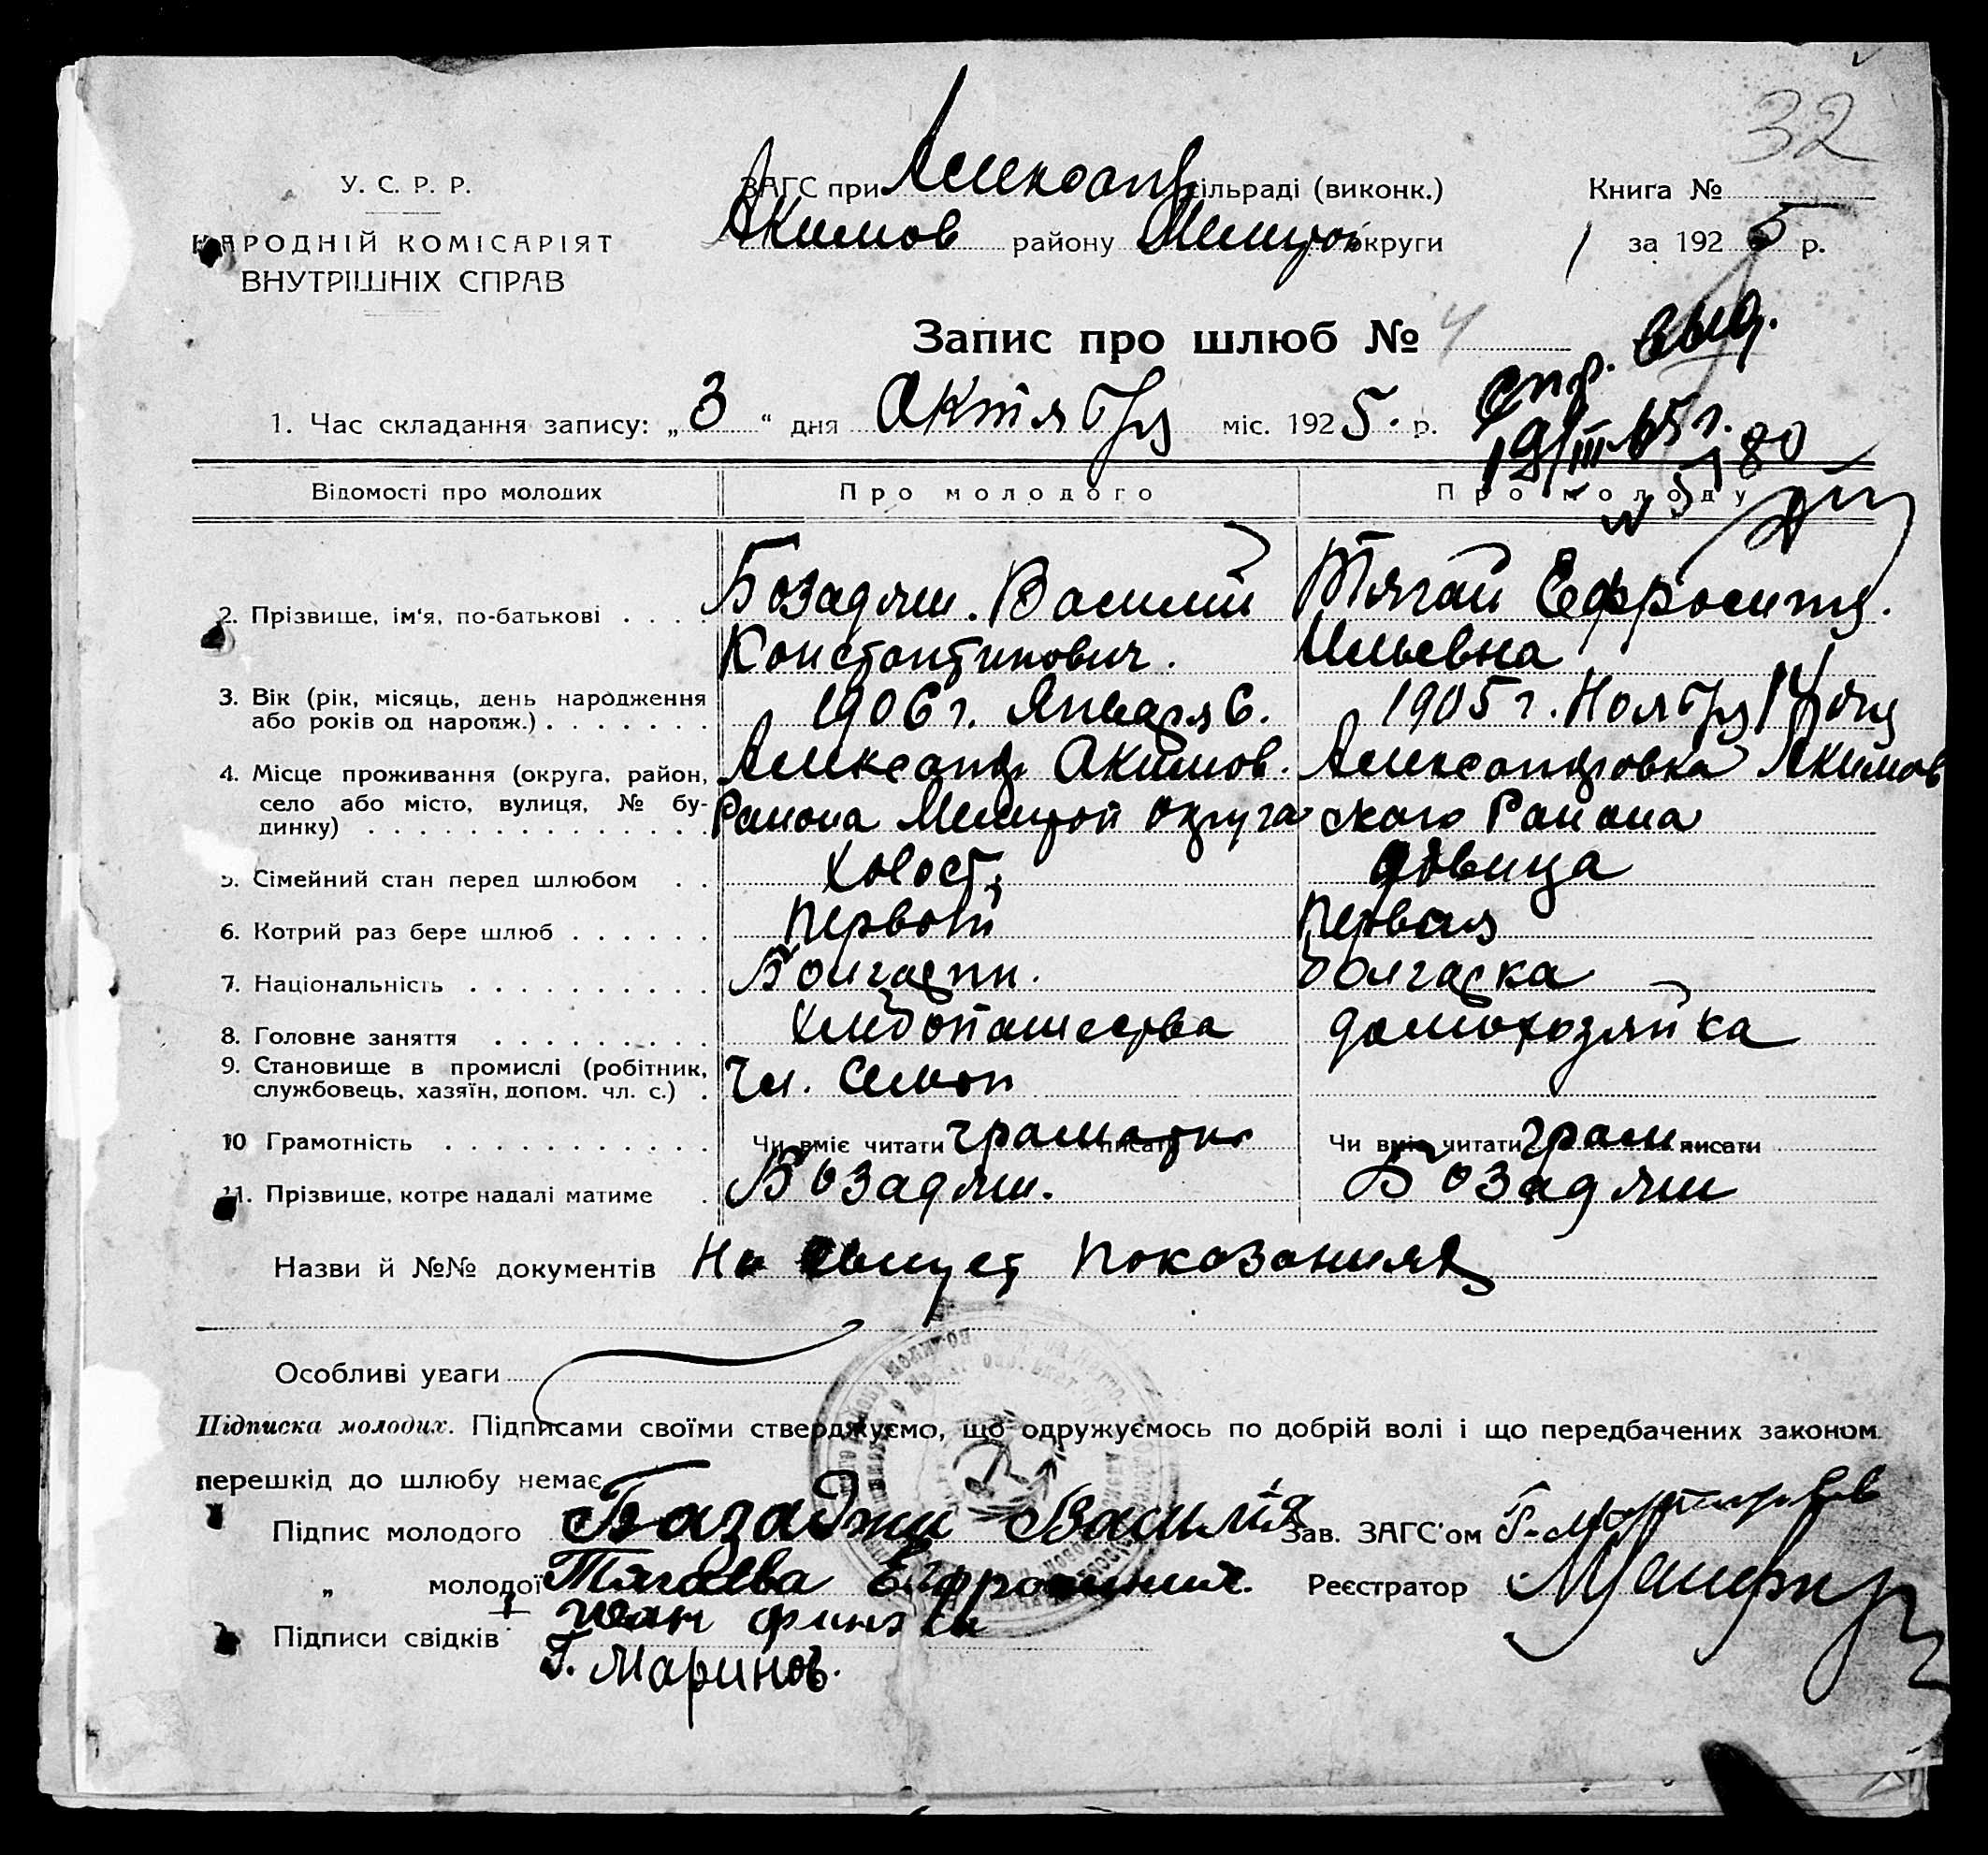 32
У. С. Р. Р.
НАРОДНІЙ КОМІСАРІЯТ
ВНУТРІШНІХ СПРАВ
ЗАГС при Александр сільраді (виконк.)
Акимов району Мелитоп округи
Книга №
за 1925 р.
Запис про шлюб № 4
спр. выд.
19/III-65 г.
1. Час складання запису: „3“ дня Октября міс. 1925. р.
Відомості про молодих Про молодого Про молоду
2. Прізвище, ім'я, по-батькові . . . . Бозаджи. Василий Тягай Ефросиния.
Константинович. Ильевна
3. Вік (рік, місяць, день народження
або років од народж.) . . . . . . . 1906 г. Января 6. 1905 г. Ноября 14 дня
4. Місце проживання (округа, район,
село або місто, вулиця, № бу-
динку) . . . . . . . . . . . . . .
Александр Акимов. Александровка Акимов
Района Мелитоп округа ского Района
5. Сімейний стан перед шлюбом . . Холост, девица
6. Котрий раз бере шлюб . . . . . . Первый Первая
7. Національність . . . . . . . . . . Болгарин. болгарка
8. Головне заняття . . . . . . . . . Хлебопашества домохозяйка
9. Становище в промислі (робітник,
службовець, хазяїн, допом. чл. с.) . Чл. Семьи
10 Грамотність . . . . . . . . . . . Чи вміє читати грамотно писати Чи вміє читати грам писати
11. Прізвище, котре надалі матиме . Бозаджи. Бозаджи
Назви й №№ документів На показаниях
Особливі уваги
Підписка молодих. Підписами своїми стверджуємо, що одружуємось по добрій волі і що передбачених законом
перешкід до шлюбу немає
Підпис молодого Базаджи Василия Зав. ЗАГС'ом
„ молодої Тягаева Ефросиния. Реєстратор
Підписи свідків
Г. Маринов.